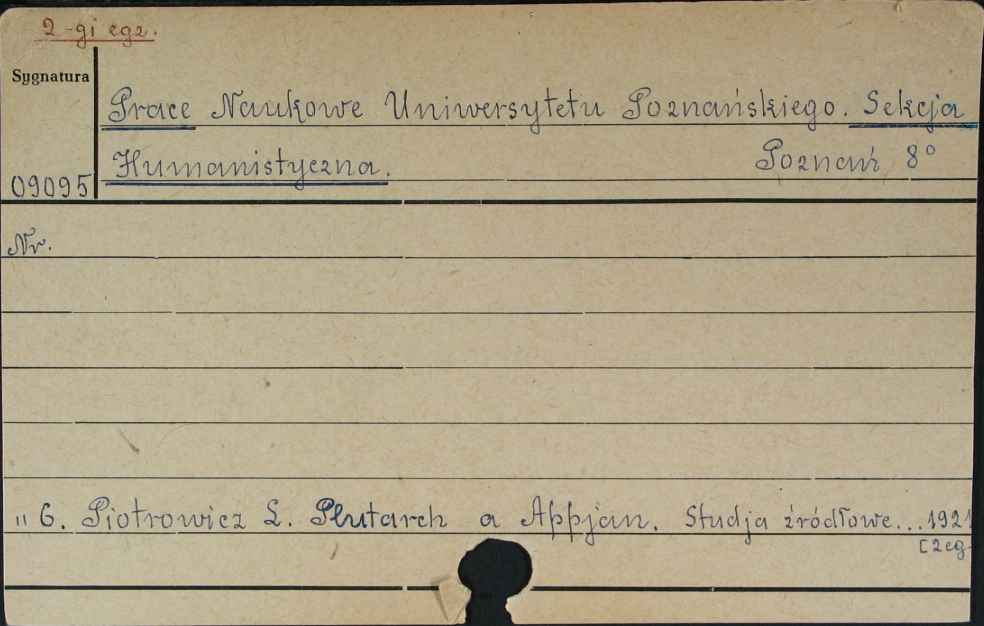 2-gi egz.
Sygnatura
Prace Naukowe Uniwersytetu Poznańskiego. Sekcja
Humanistyczna. Poznań 8°
09095
Nr.
" 6. Piotrowicz L. Plutarch a Appjan. Studja źródłowe...1921
[2eg-